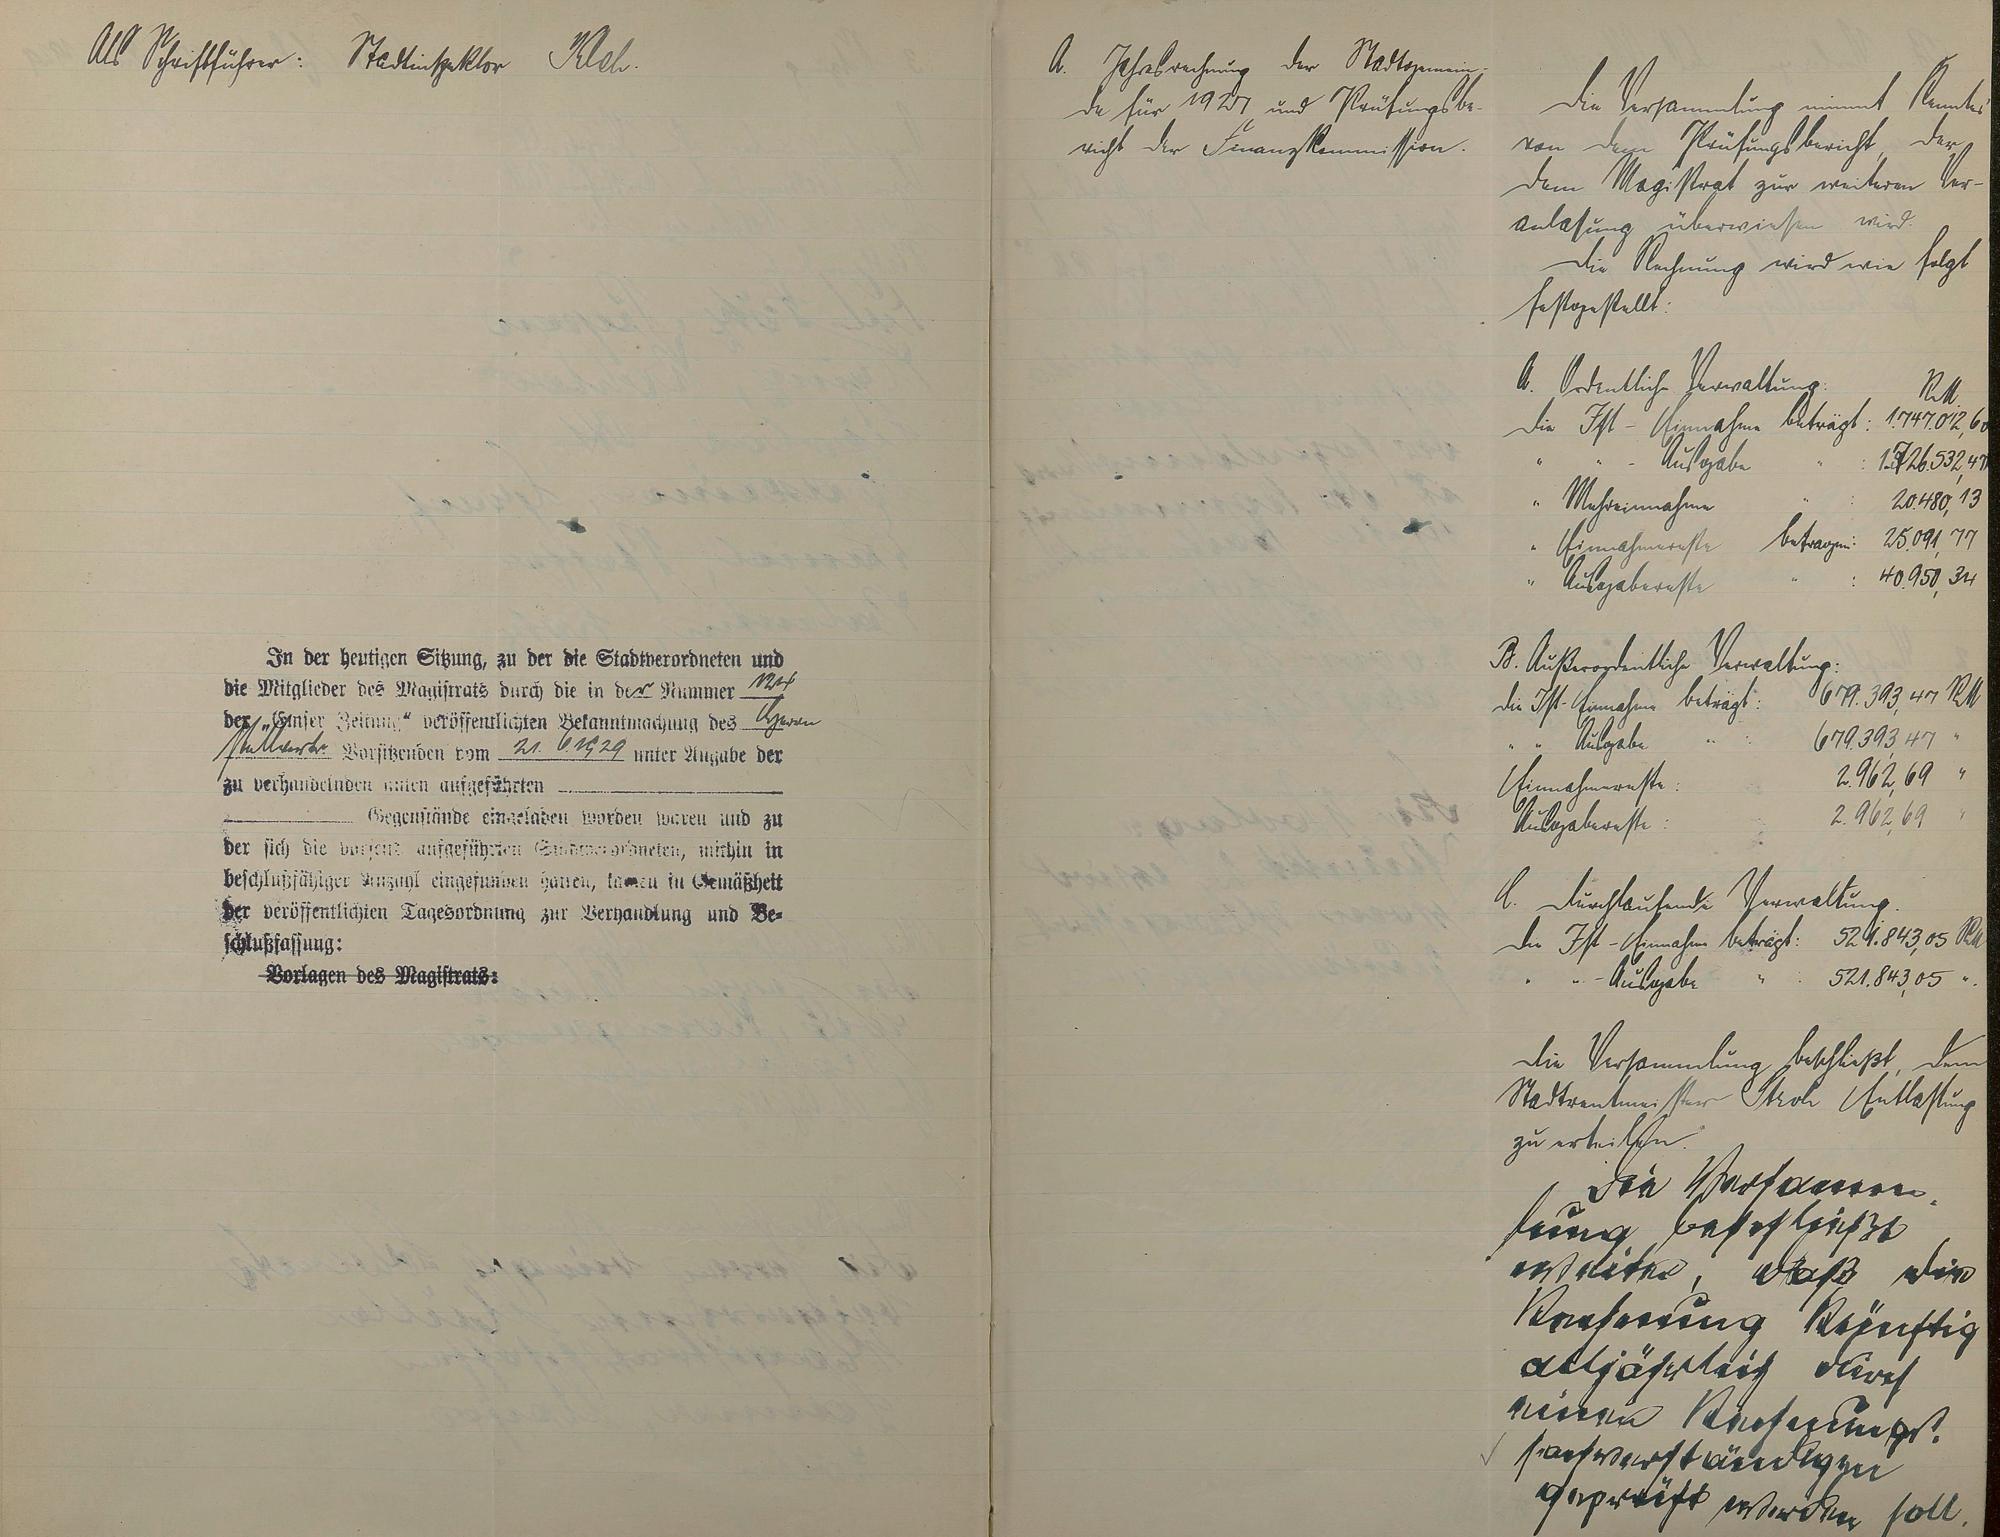 Als Schriftführer: Stadtinspektor Kloh.
In der heutigen Sitzung, zu der die Stadtverordneten und
die Mitglieder des Magistrats durch die in der Nummer
der „Emser Zeitung“ veröffentlichten Bekanntmachung des Herrn
stellvertr. Vorsitzenden vom 21. 6. 1929 unter Angabe der
zu verhandelnden unten aufgeführten
Gegenstände eingeladen worden waren und zu
der sich die vorseits aufgeführten Stadtverordneten, mithin in
beschlußfähiger Anzahl eingefunden hatten, kamen in Gemäßheit
der veröffentlichten Tagesordnung zur Verhandlung und Be-
schlußfassung:
Vorlagen des Magistrats:
A. Jahresrechnung der Stadtgemein-
de für 1927 und Prüfungsbe-
richt der Finanzkommission.
Die Versammlung nimmt Kenntnis
von dem Prüfungsbericht, der
dem Magistrat zur weiteren Ver-
anlasung überwiesen wird.
Die Rechnung wird wie folgt
festgestellt:
A. Ordentliche Verwaltung: RM.
Die Ist-Einnahme beträgt: 1.747.012,60
" " - Ausgabe " : 1.726.532,47
" Mehreinnahme " : 20.480,13
" Einnahmereste betragen: 25.091,77
" Ausgabereste " : 40.950,34
B. Außerordentliche Verwaltung:
Die Ist-Einnahme beträgt: 679.393,47 RM
" " Ausgabe " : 679.393,47 "
Einnahmereste: 2.962,69 "
Ausgabereste: 2.962,69 "
C. Durchlaufende Verwaltung.
Die Ist-Einnahme beträgt: 521.843,05 RM
" " - Ausgabe " : 521.843,05 ".
Die Versammlung beschließt, dem
Stadtrentmeister Stroh Entlastung
zu erteilen.
Die Versamm-
lung beschließt
weiter, daß die
Rechnung künftig
alljährlich durch
einen Rechnungs-
sachverständigen
geprüft werden soll.